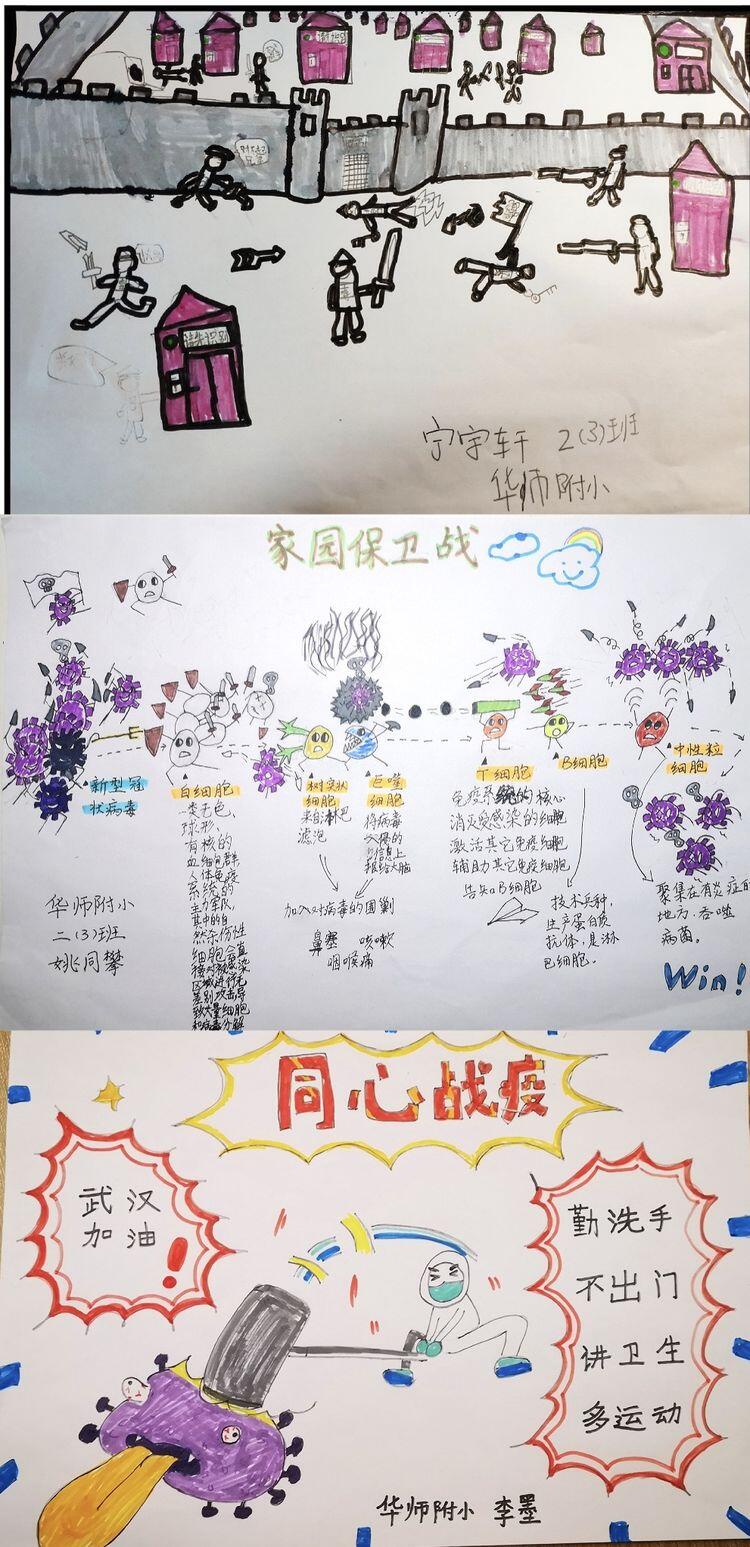 宁宇轩 2(3)班
华师附小
家园保卫战
新型冠
状病毒
白细胞
一类无色,
球形,
有核的
血细胞群
人体免疫
系统的
主力军队,
其中的自
然杀伤性
细胞会直
接对被感染
区域进行无
差别攻击导
致大量细胞
和病毒分解
树突状
细胞
来自淋巴
滤泡
巨噬
细胞
将病毒
入侵的
信息上
报给大脑
加入对病毒的围剿
鼻塞 咳嗽
咽喉痛
T细胞
免疫系统的核心
消灭受感染的细胞
激活其它免疫细胞
辅助其它免疫细胞
告知B细胞
B细胞
技术兵种,
生产蛋白质
抗体,是淋
巴细胞。
中性粒
细胞
聚集在有炎症的
地方,吞噬
病菌。
Win!
华师附小
二(3)班
姚同攀
同心战疫
武汉
加油!
勤洗手
不出门
讲卫生
多运动
华师附小 李墨